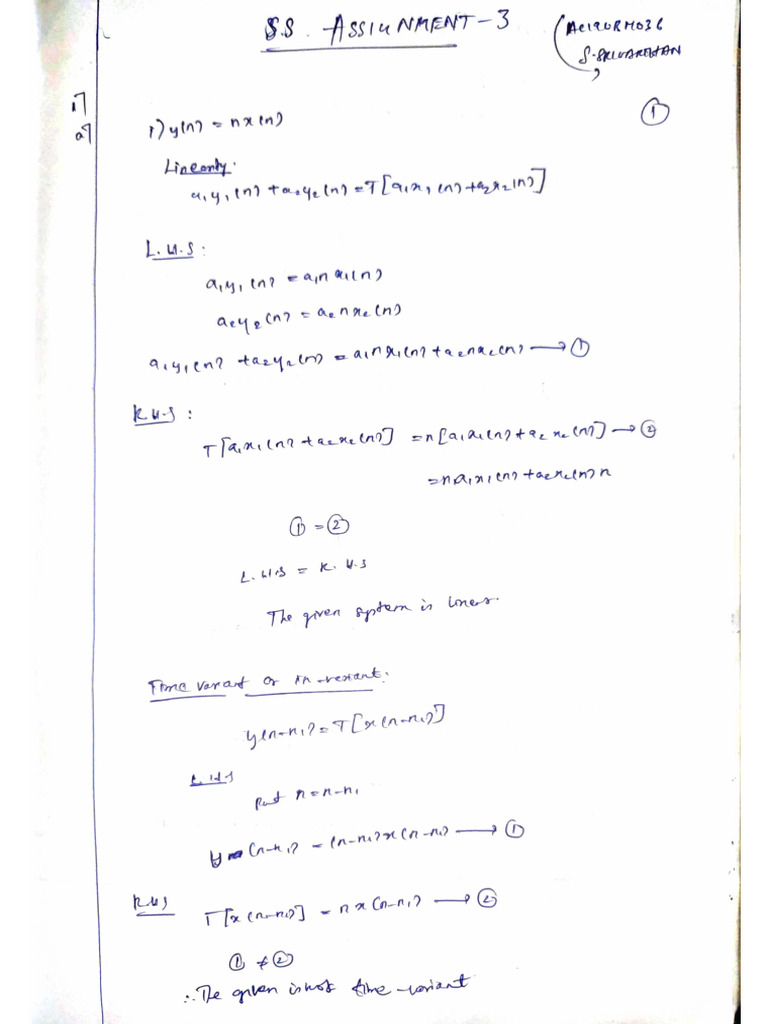 S.S ASSIGNMENT-3
AC19URM036
S.SRIVARDHAN
1
1)
a)
1) y(n) = nx(n)
Linearity:
a₁y₁(n) + a₂y₂(n) = T[a₁x₁(n) + a₂x₂(n)]
L.H.S:
a₁y₁(n) = a₁nx₁(n)
a₂y₂(n) = a₂nx₂(n)
a₁y₁(n) + a₂y₂(n) = a₁nx₁(n) + a₂nx₂(n) → ①
R.H.S:
T[a₁x₁(n) + a₂x₂(n)] = n[a₁x₁(n) + a₂x₂(n)] → ②
= na₁x₁(n) + a₂x₂(n)n
① = ②
L.H.S = R.H.S
The given system is linear.
Time variant or in-variant:
y(n-n₁) = T[x(n-n₁)]
L.H.S
Put n = n-n₁
y(n-n₁) = (n-n₁)x(n-n₁) → ①
R.H.S
T[x(n-n₁)] = nx(n-n₁) → ②
① ≠ ②
∴ The given is not time-variant